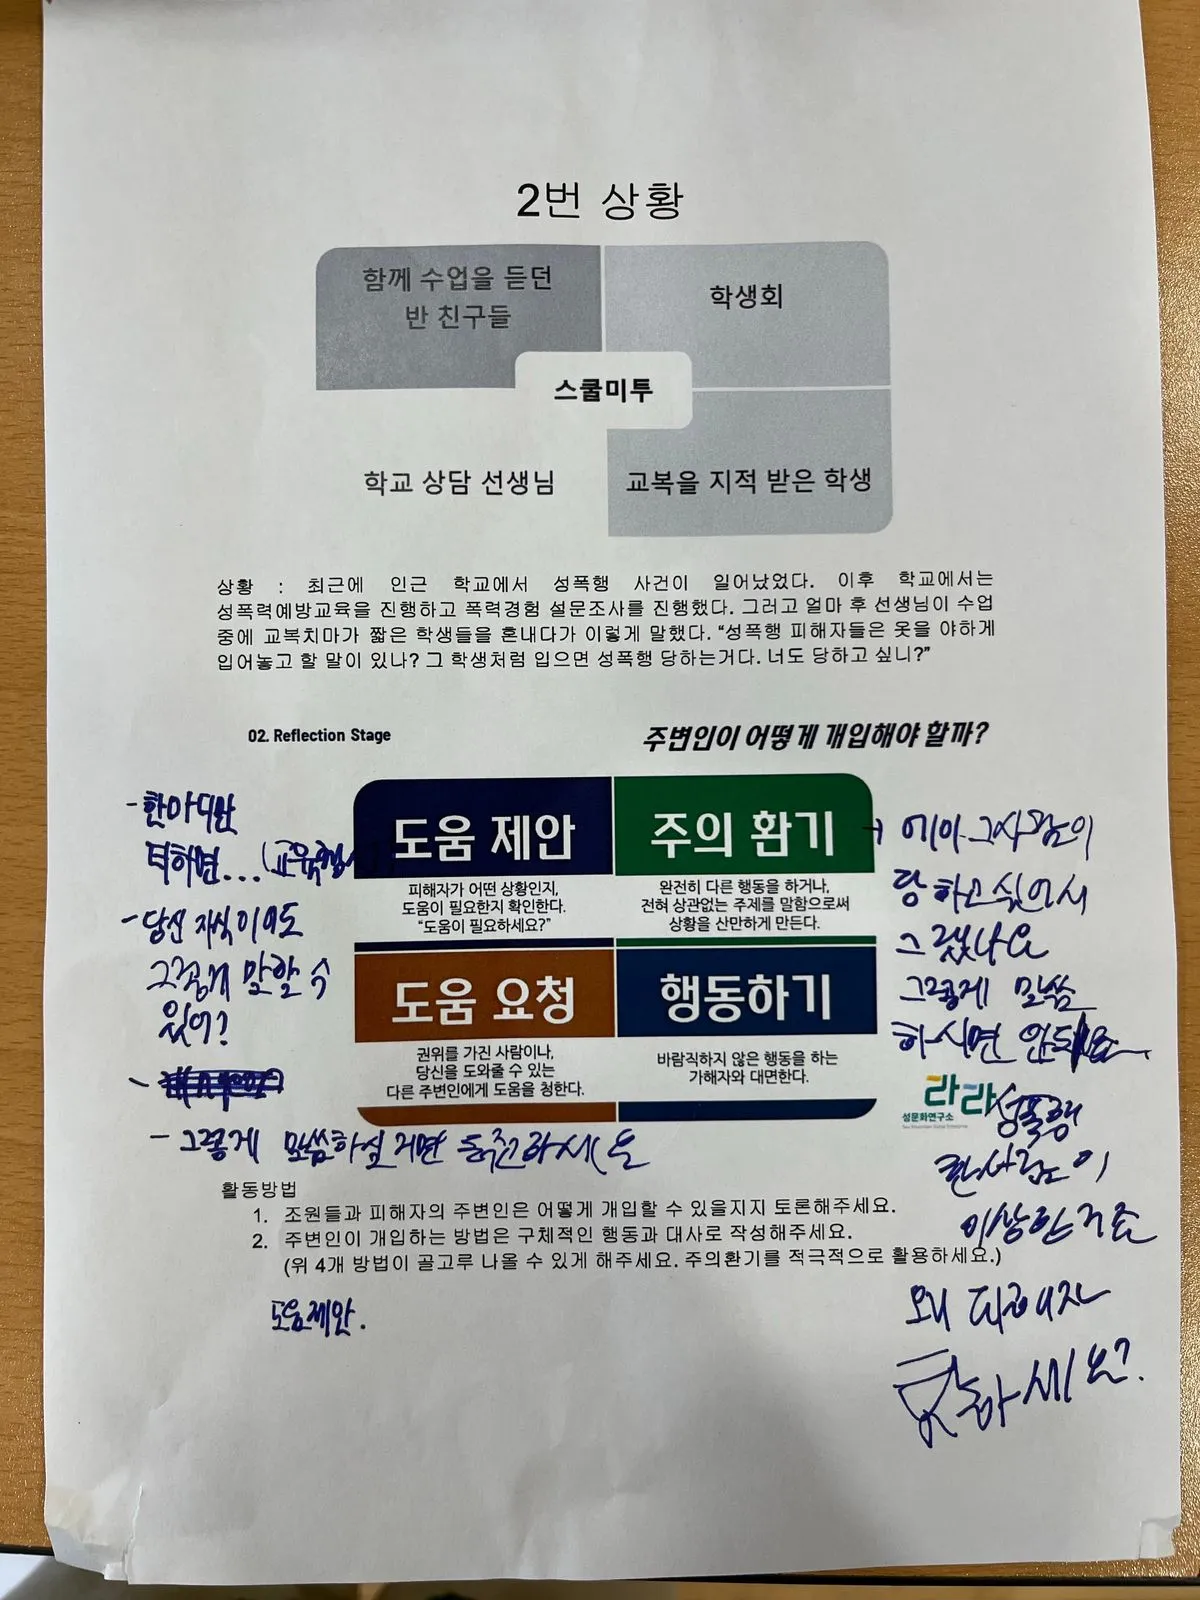 2번 상황
함께 수업을 듣던
반 친구들
학생회
스쿨미투
학교 상담 선생님
교복을 지적 받은 학생
상황 : 최근에 인근 학교에서 성폭행 사건이 일어났었다. 이후 학교에서는
성폭력예방교육을 진행하고 폭력경험 설문조사를 진행했다. 그러고 얼마 후 선생님이 수업
중에 교복치마가 짧은 학생들을 혼내다가 이렇게 말했다. “성폭행 피해자들은 옷을 야하게
입어놓고 할 말이 있나? 그 학생처럼 입으면 성폭행 당하는거다. 너도 당하고 싶니?”
02. Reflection Stage
주변인이 어떻게 개입해야 할까?
도움 제안
피해자가 어떤 상황인지,
도움이 필요한지 확인한다.
“도움이 필요하세요?”
주의 환기
완전히 다른 행동을 하거나,
전혀 상관없는 주제를 말함으로써
상황을 산만하게 만든다.
도움 요청
권위를 가진 사람이나,
당신을 도와줄 수 있는
다른 주변인에게 도움을 청한다.
행동하기
바람직하지 않은 행동을 하는
가해자와 대면한다.
- 한마디만
더하면...
- 당신 자식이어도
그렇게 말할 수
있어?
- 그렇게 말씀하실거면
에이 그사람도이
당하고 싶어서
그랬나요
그렇게 말씀
하시면 안되요
라라
성문화연구소
성폭행
한사람이
이상한거죠
왜 피해자
탓하세요?
활동방법
1. 조원들과 피해자의 주변인은 어떻게 개입할 수 있을지지 토론해주세요.
2. 주변인이 개입하는 방법은 구체적인 행동과 대사로 작성해주세요.
(위 4개 방법이 골고루 나올 수 있게 해주세요. 주의환기를 적극적으로 활용하세요.)
도움제안.